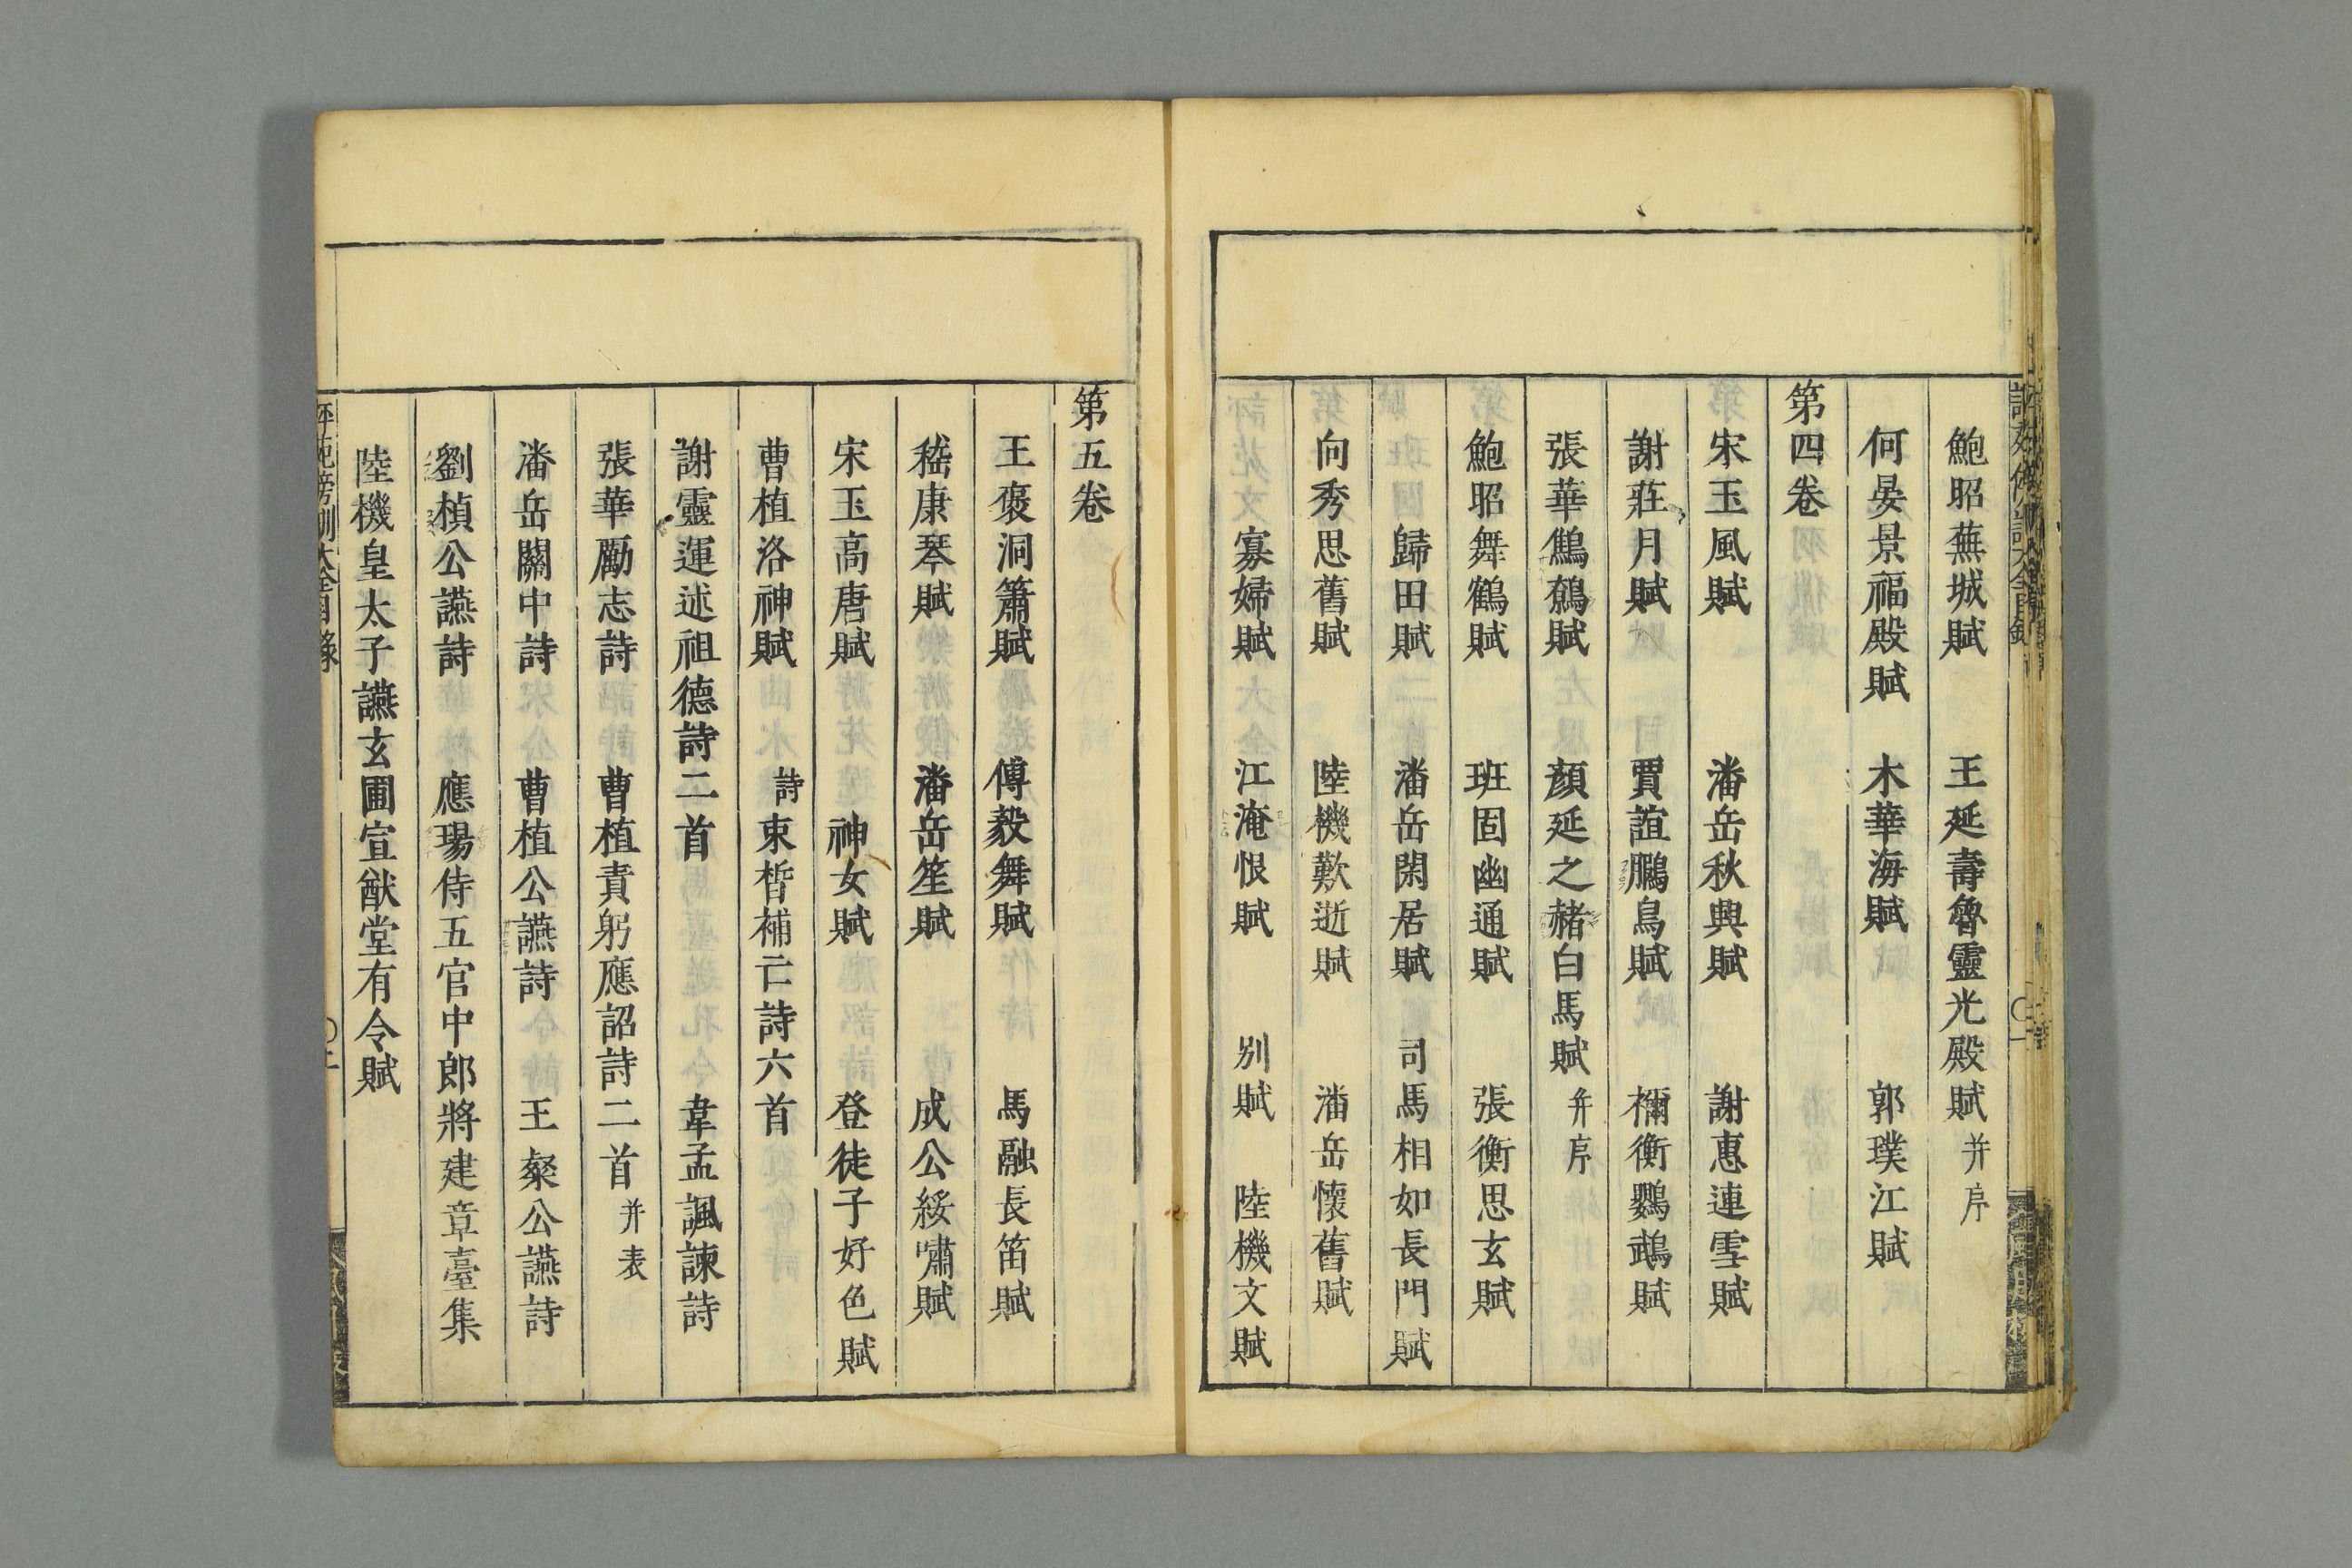 鮑昭蕪城賦　王延壽魯靈光殿賦并序
何晏景福殿賦　木華海賦　郭璞江賦
第四卷
宋玉風賦　潘岳秋興賦　謝惠連雪賦
謝莊月賦　賈誼鵩鳥賦　禰衡鸚鵡賦
張華鷦鷯賦　顏延之赭白馬賦并序
鮑昭舞鶴賦　班固幽通賦　張衡思玄賦
歸田賦　潘岳閑居賦　司馬相如長門賦
向秀思舊賦　陸機歎逝賦　潘岳懷舊賦
寡婦賦　江淹恨賦　別賦　陸機文賦
第五卷
王褒洞簫賦　傅毅舞賦　馬融長笛賦
嵇康琴賦　潘岳笙賦　成公綏嘯賦
宋玉高唐賦　神女賦　登徒子好色賦
曹植洛神賦　詩　束皙補亡詩六首
謝靈運述祖德詩二首　韋孟諷諫詩
張華勵志詩　曹植責躬應詔詩二首并表
潘岳關中詩　曹植公讌詩　王粲公讌詩
劉楨公讌詩　應瑒侍五官中郎將建章臺集
陸機皇太子讌玄圃宣猷堂有令賦